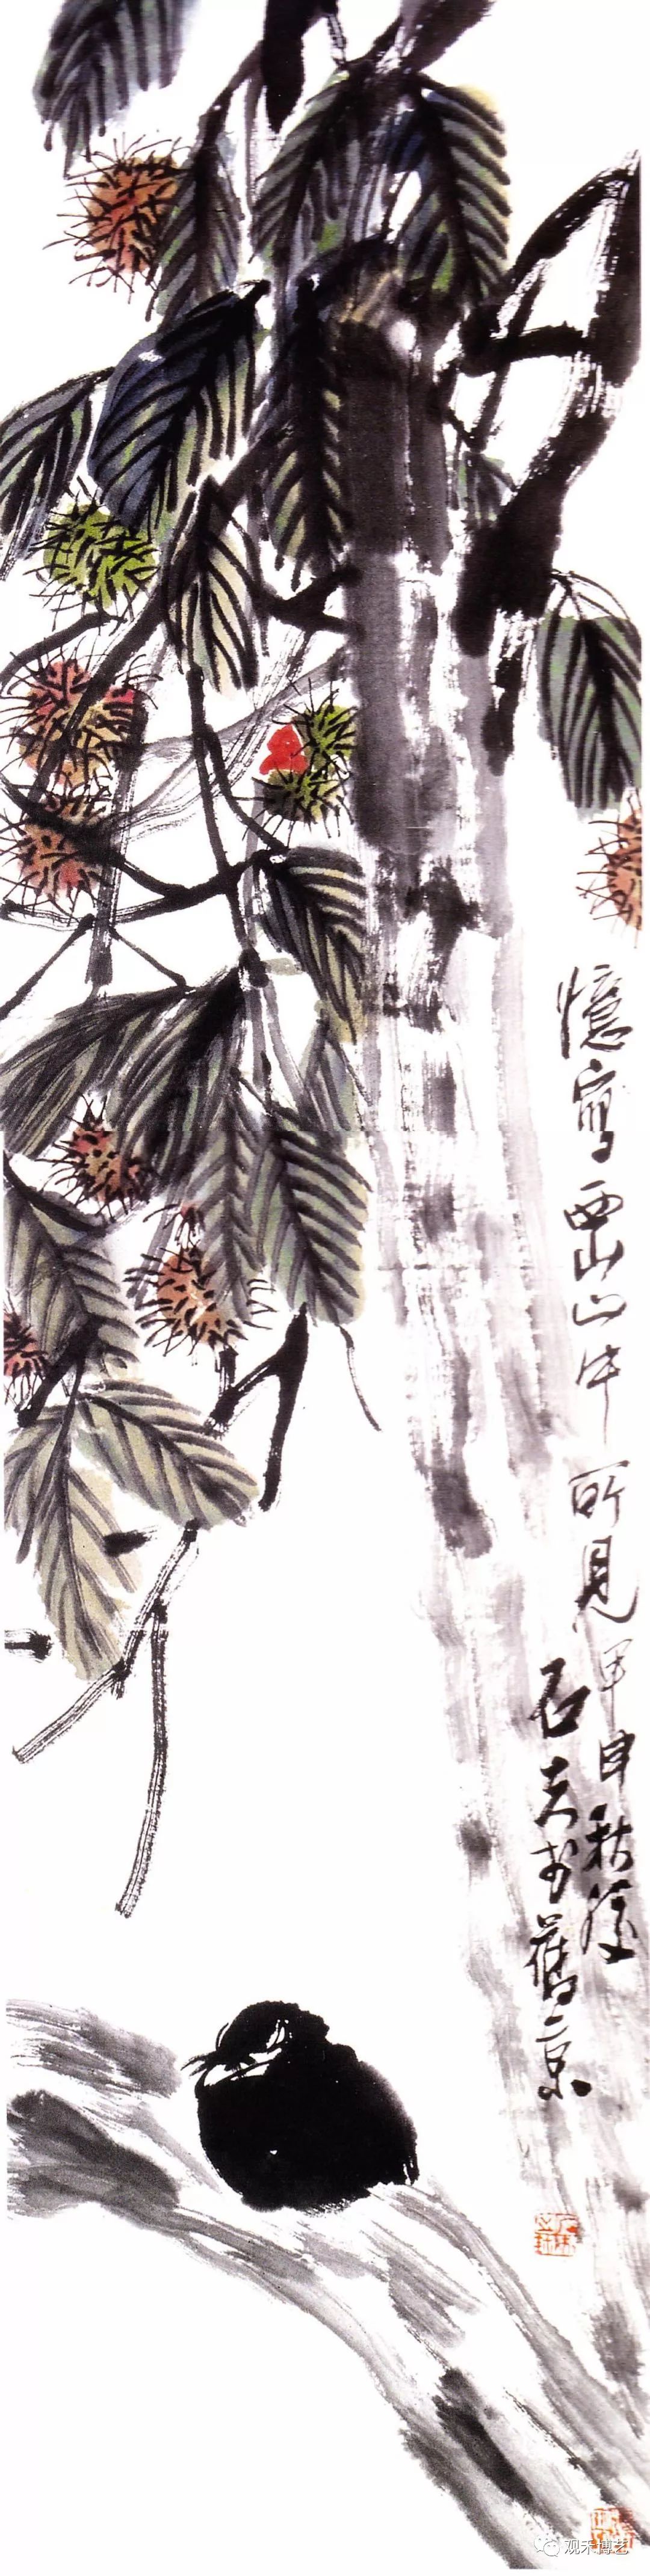 憶寫西山山中所見甲申秋後
石夫於舊京
观禾博艺